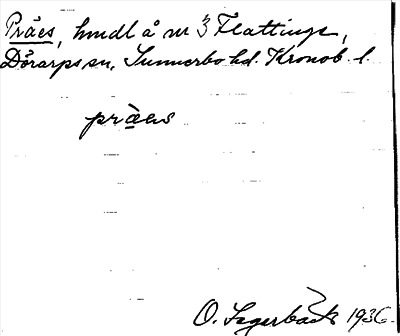 Präes, hmdl å nr 3 Flattinge,
Dörarps sn, Sunnerbo hd. Kronob. l.
präes
O. Lagerbäck 1936.